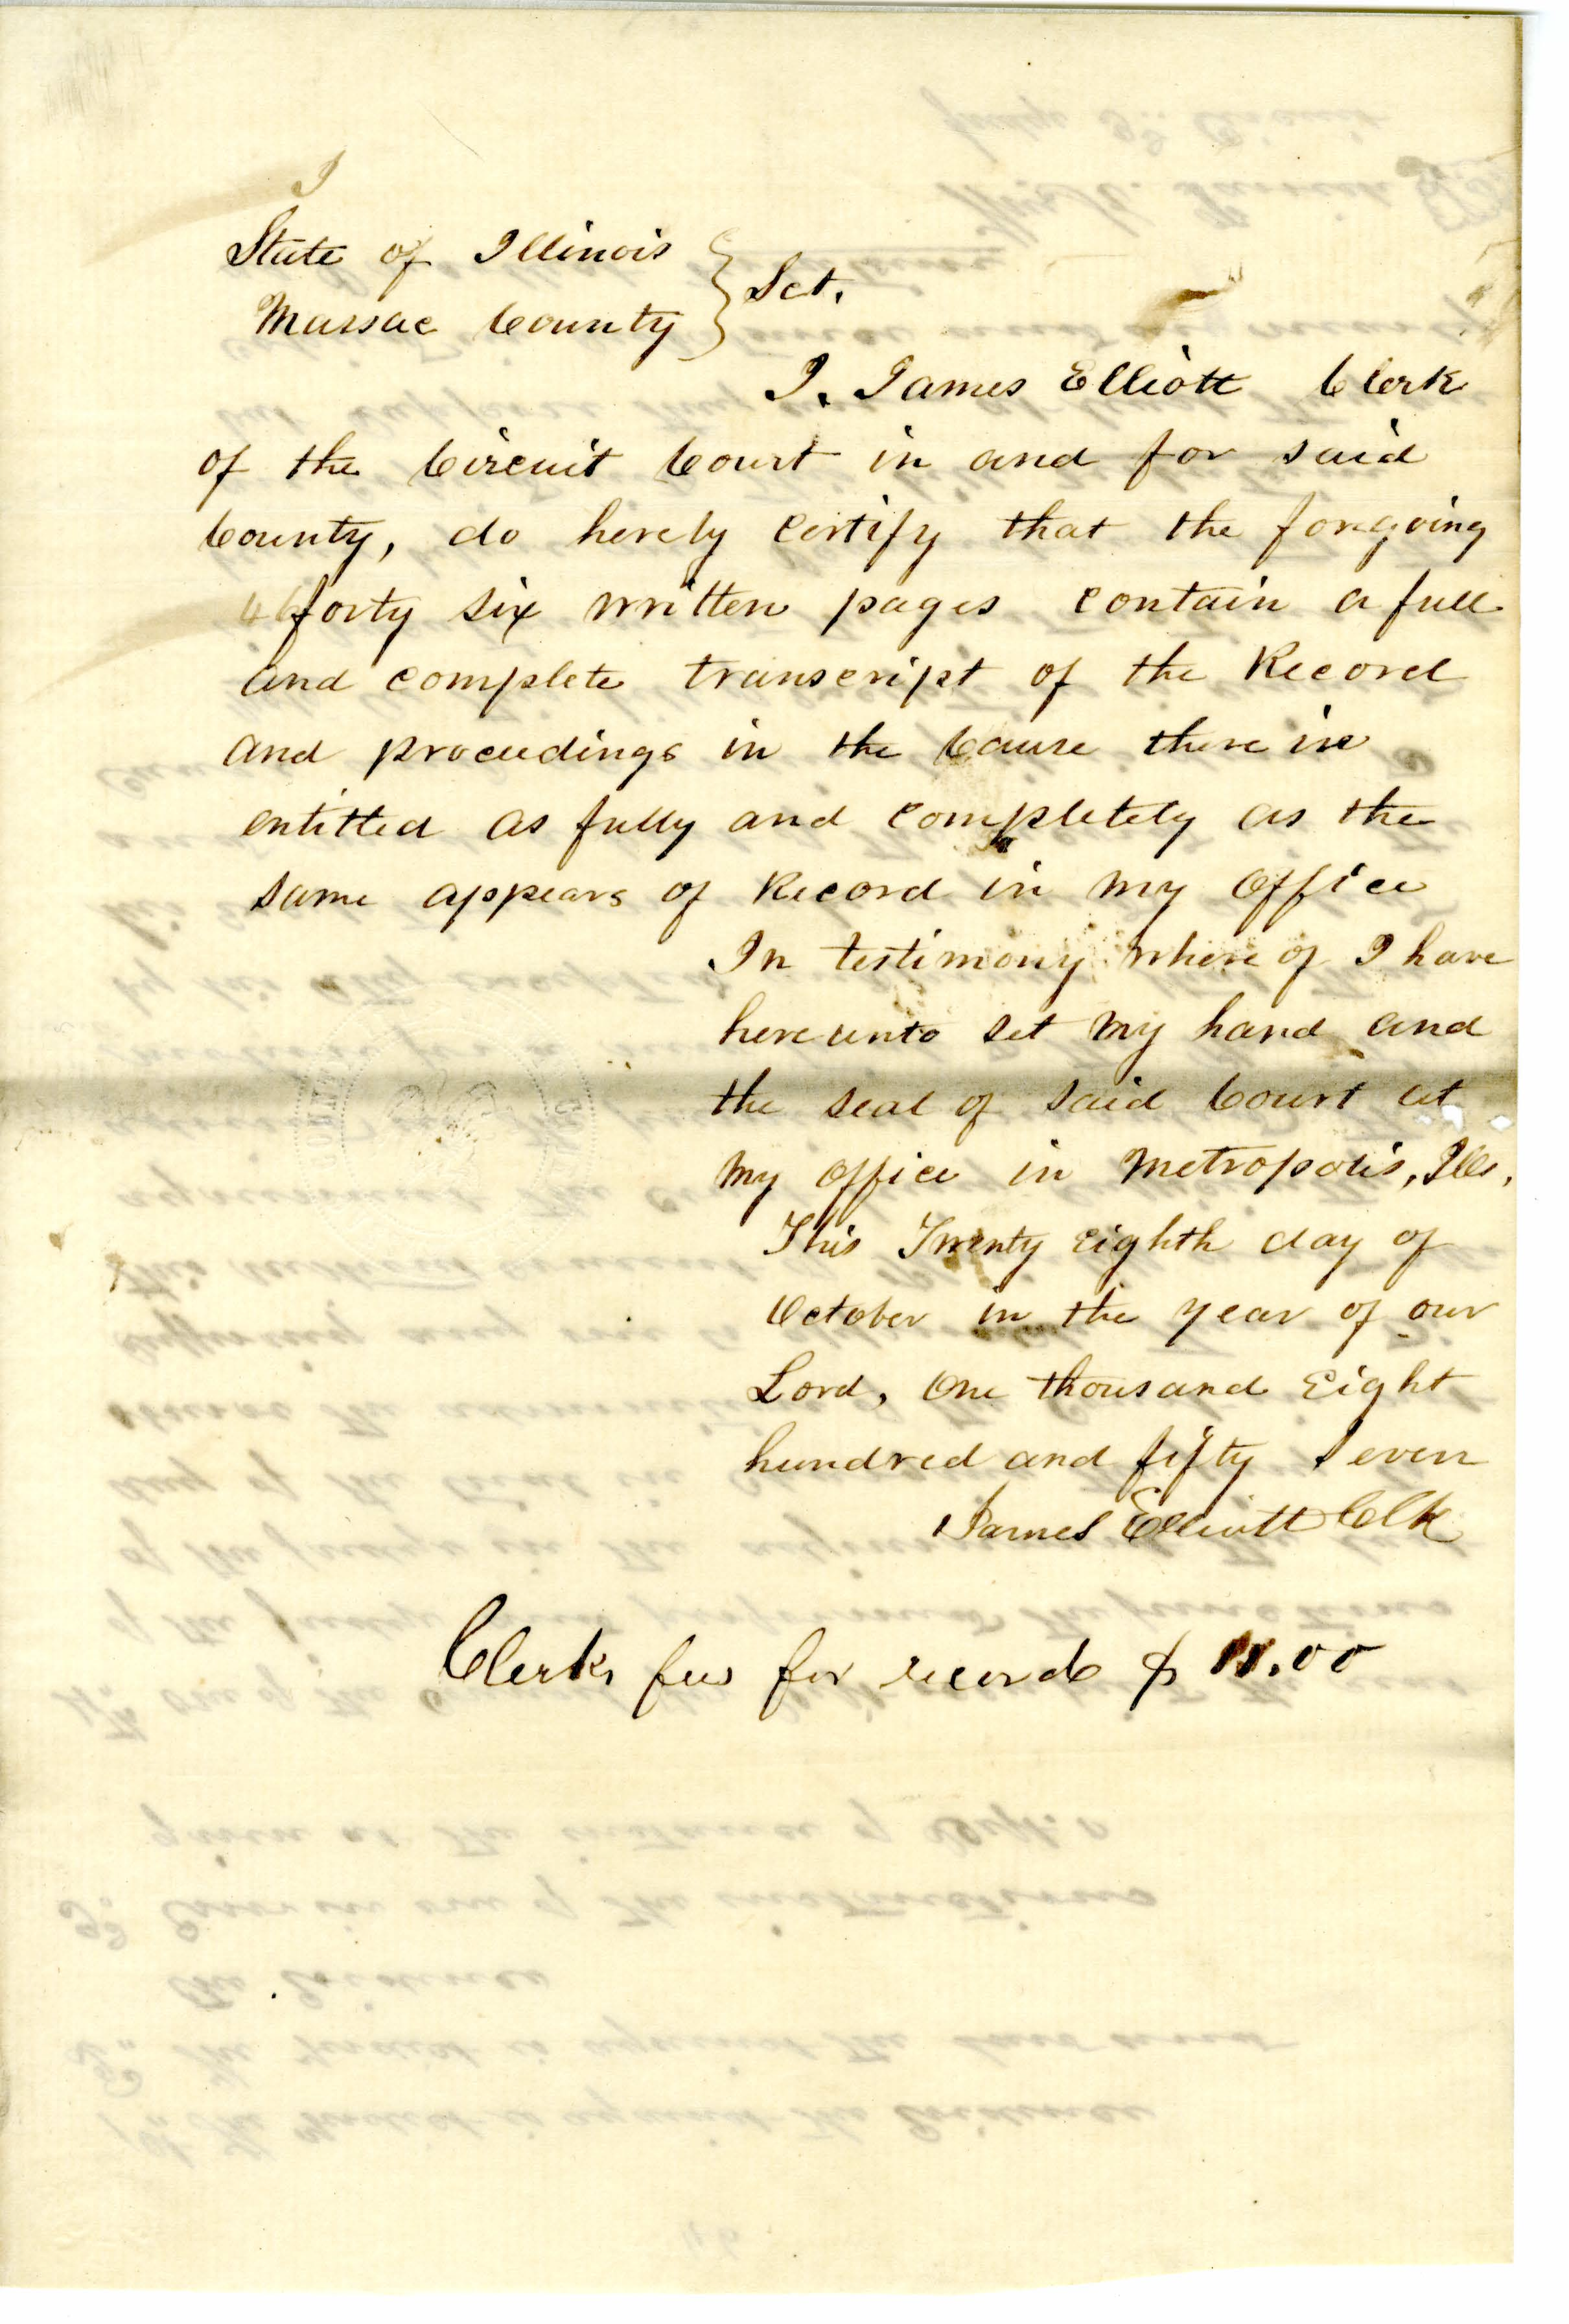 I
State of Illinois } Sct.
Massac County
I, James Elliott Clerk
of the Circuit Court in and for said
County, do herely certify that the foregoing
46 forty six written pages contain a full
and complete transcript of the Record
and proceedings in the Cause there in
entitled as fully and completely as the
same appears of Record in my Office
In testimony where of I have
here unto set my hand and
the seal of said Court at
my office in Metropolis, Ills,
This Twenty Eighth day of
October in the year of our
Lord, One thousand Eight
hundred and fifty Seven
James Elliott Clk
Clerks fees for record $ 11.00